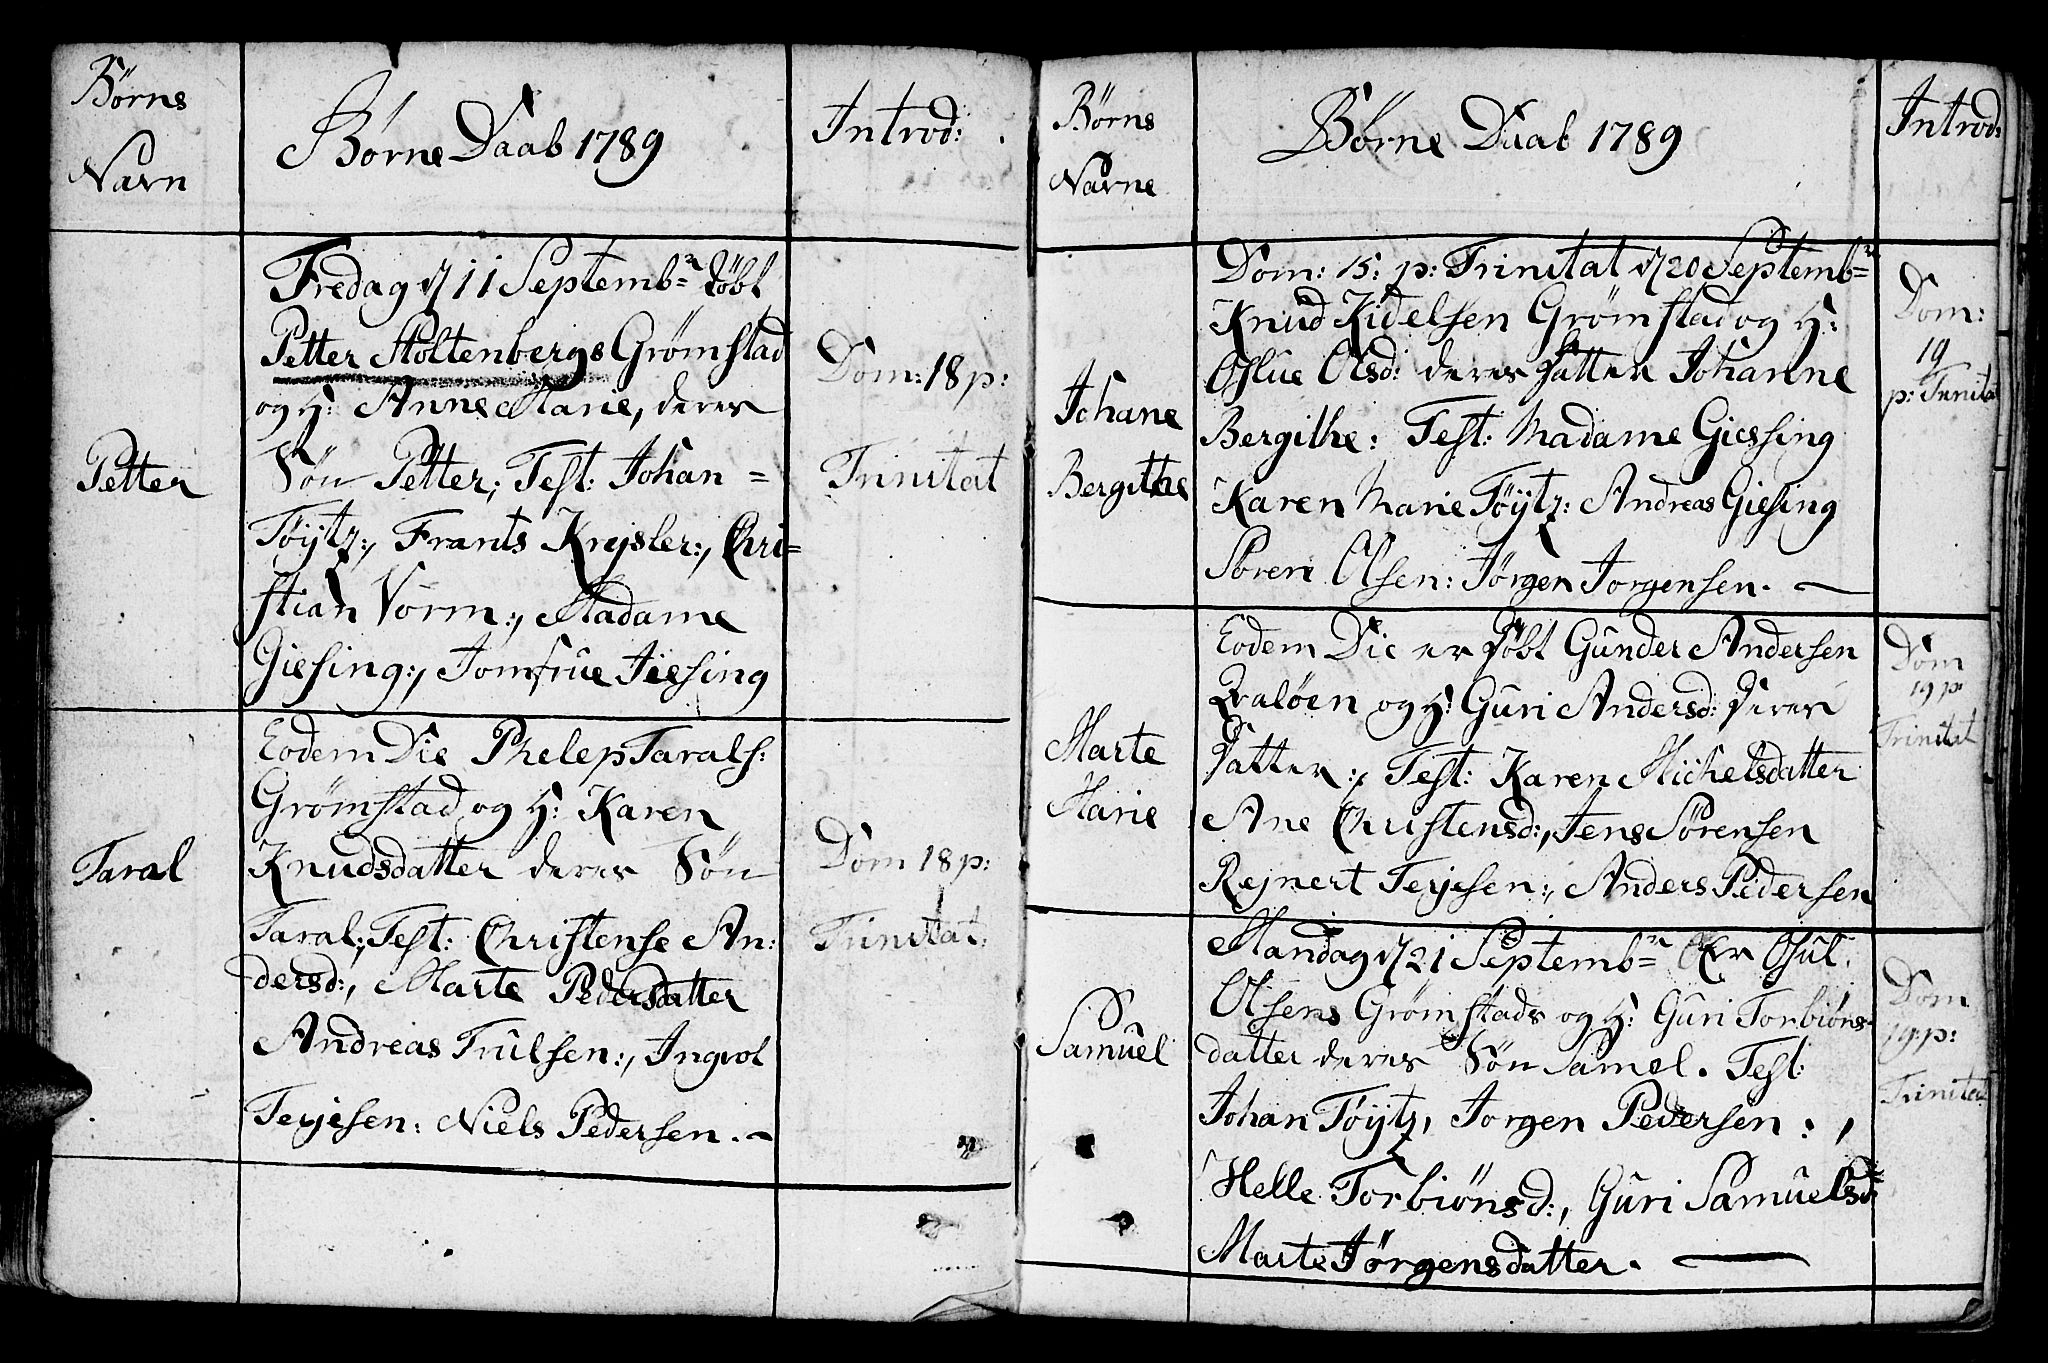 Börns
Navn
Börne Daab 1789
Introd:
Petter
Fredag d 11 Septembr döbt
Petter Stoltenbergs Grömstad
og H: Anne Marie, deres
Sön Petter; Test: Johan =
Töÿtz:, Frants Krejsler:, Chri=
stian Vorm:, Madame
Giesing:, Jomfrue Jiesing
Dom: 18 p:
Trinitat
Taral
Eodem Die Phelep Tarals:
Grömstad og H: Karen
Knudsdatter deres Sön
Taral; Test: Christense An:
dersd:, Marte Pedersdatter
Andreas Trulsen:, Ingvol
Terjesen: Niels Pedersen. -
Dom 18 p:
Trinitat:
Börns
Navne
Börne Daab 1789
Introd:
Johane
Bergithe
Dom: 15: p: Trinitat d 20 Septembr
Knud Kidelsen Grömstad og H:
Olsd: deres Datter Johanne
Bergithe: Test: Madame Giessing
Karen Marie Töÿtz: Andreas Giesing
Sören Olsen: Jörgen Jorgensen. —
Dom:
19
p: Trinita
Marte
Marie
Eodem Die er döbt Gunder Andersen
Qvalöen og H: Guri Andersd: deres
Datter:, Test: Karen Michelsdatter
Ane Christensd:, Jens Sörensen
Rejnert Terjesen:, Anders Pedersen
Dom
19 p:
Trinitat
Samuel
Mandag d 21 Septembr Er Osul
Olsens Grömstads og H: Guri Torbiöns-
datter deres Sön Samel. Test:
Johan Töÿtz, Jorgen Pedersen:,
Helle Torbiönsd:, Guri Samuelsd:
Marte Jörgensdatter. —
Dom
19: p:
Trinitat